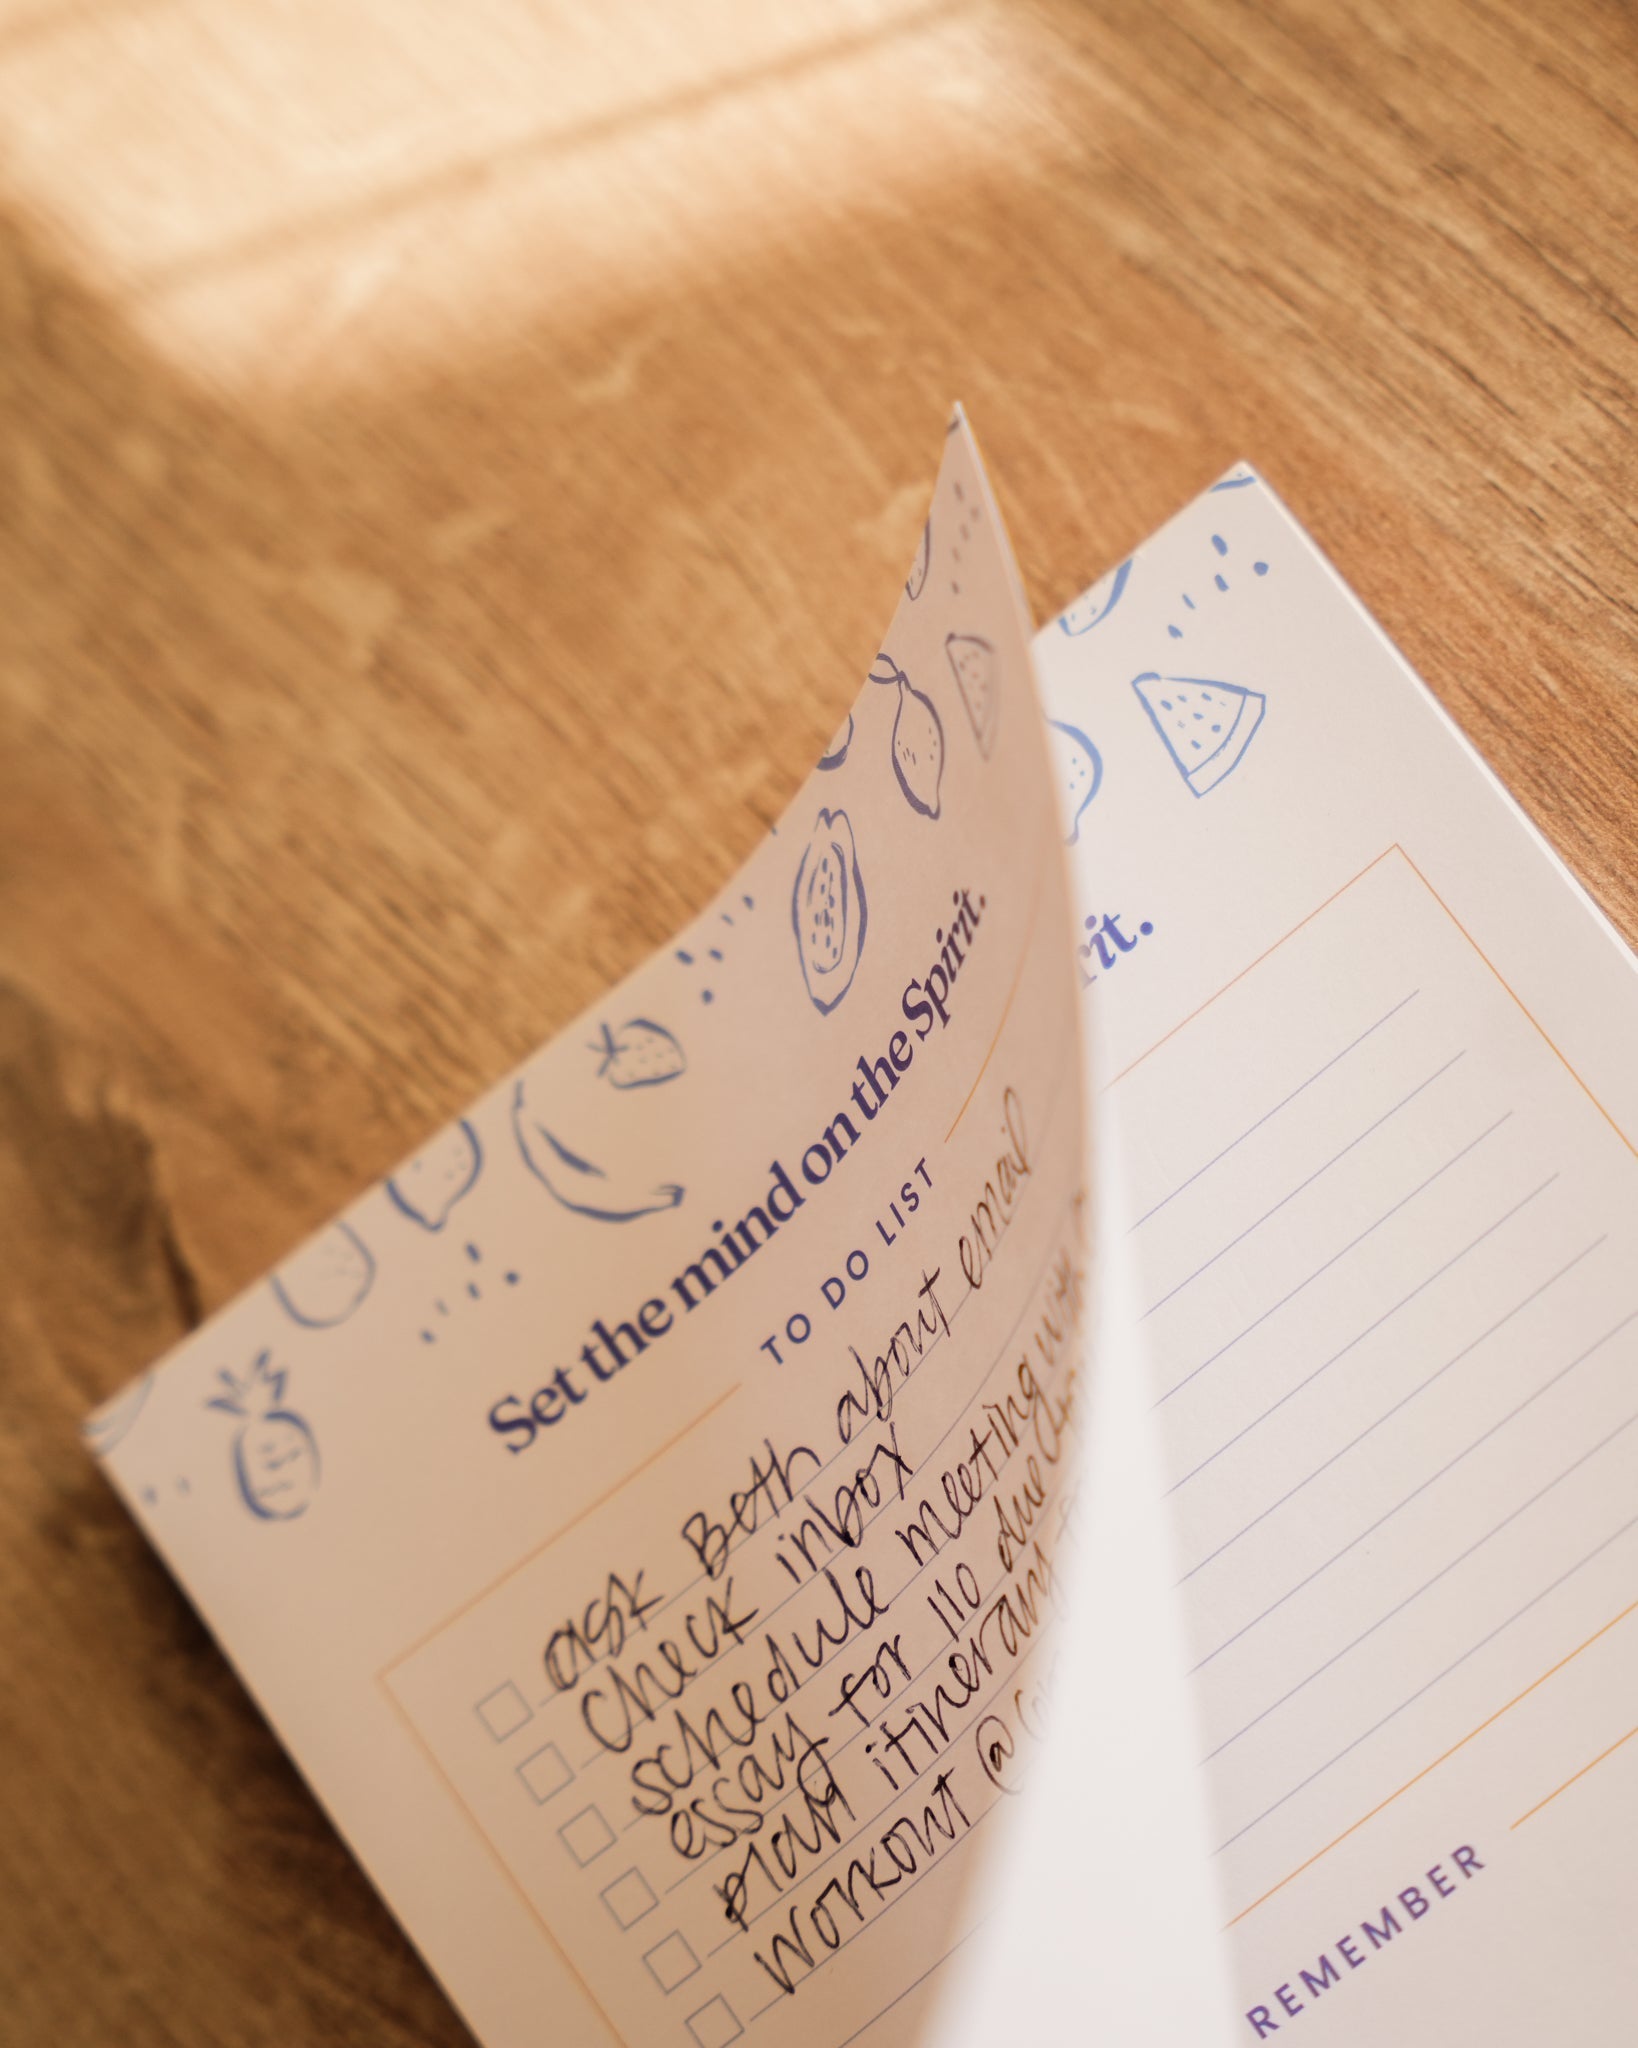 Set the mind on the Spirit.
TO DO LIST
ask Beth about email
check inbox
schedule meeting
essay for 110 due
plan itinerary
workout @
rit.
REMEMBER